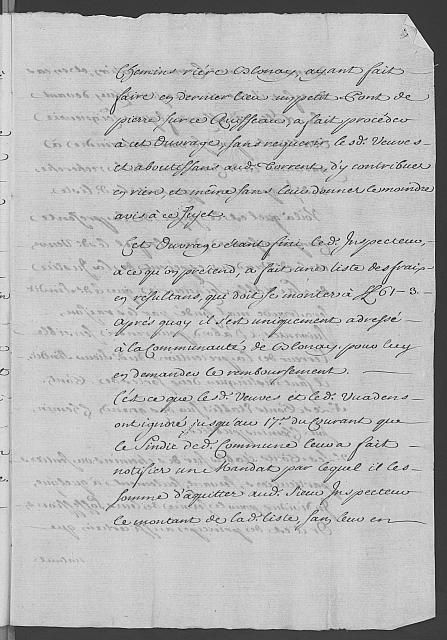 Chemins riére Blonay, ayant fait
faire en dernier lieu un petit Pont de
pierre sur ce Ruisseau, a fait proceder
à cet Ouvrage, sans requerir les d.ts Veuves
et aboutissans aud.t Torrent, d'y contribuer
en rien, et même sans leur donner le moindre
avis à ce sujet.
Cet Ouvrage étant fini led.t Inspecteur,
à ce qu'on prétend, a fait une liste des frais
en resultans, qui doit se monter à 61 - 3. -
Après quoy il s'est uniquement adressé
à la Communauté de Blonay, pour luy
en demander le remboursement.
C'est ce que les d.ts Veuves et led.t Vuadens
ont ignoré jusqu'au 17.e du Courant que
le Sindic de d.e Commune leur a fait
notifier une Mandat par lequel il les
somme d'aquitter aud.t Sieur Inspecteur
le montant de lad.e liste, sans leur en